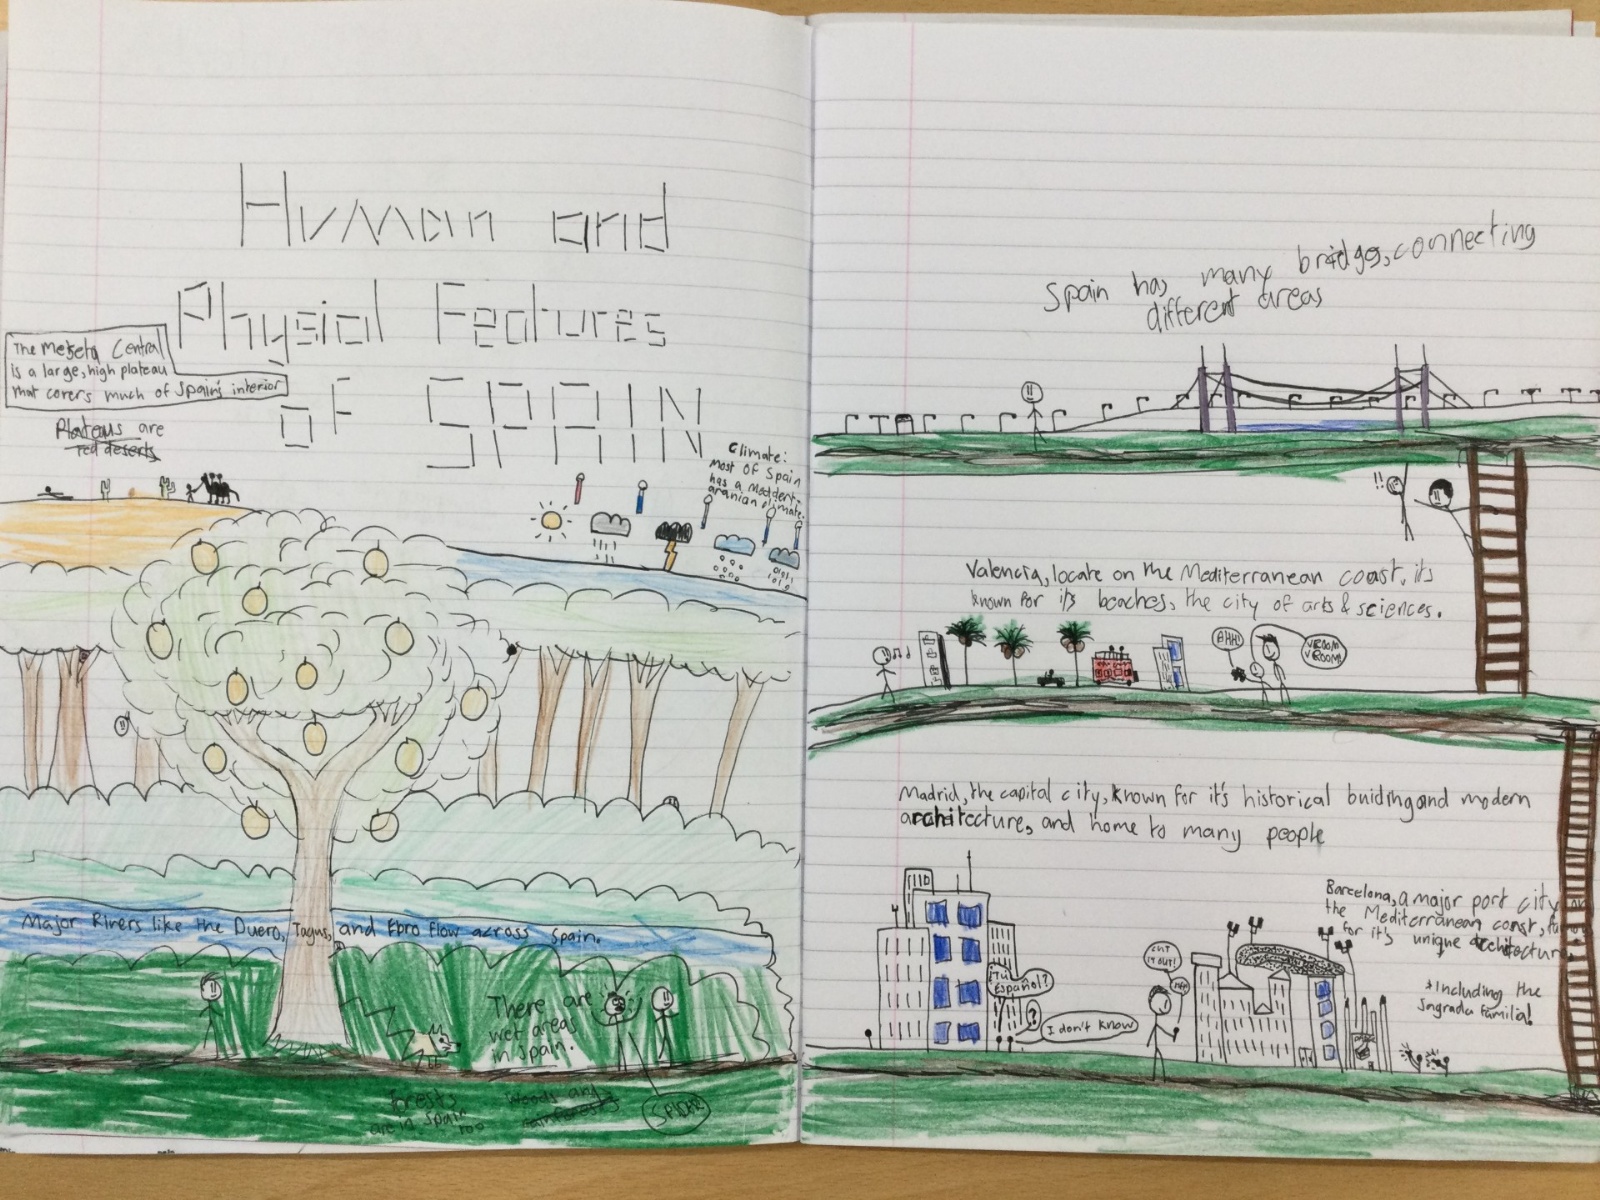 Human and
Physical Features
of SPAIN
The Meseta Central
is a large, high plateau
that covers much of Spain's interior
Plateaus are
red deserts
Climate:
Most of Spain
has a Meddert-
aranian climate.
Major Rivers like the Duero, Tagus, and Ebro flow across Spain.
There are
wet areas
in Spain.
Forests
are in Spain
too
Woods and
rainforests
SPIDER
Spain has many bridgs, connecting
different areas
!!
Valencia, locate on the Mediterranean coast, its
known for it's beaches, the city of arts & sciences.
AHH!
VROOM
VROOM!
Madrid, the capital city, known for it's historical buidingand modern
architecture, and home to many people
Barcelona, a major port city
the Mediterranean coast,
for it's unique architecture
*Including the
Sagrada Familia!
Español?
?
I don't know
CUT
IT OUT!